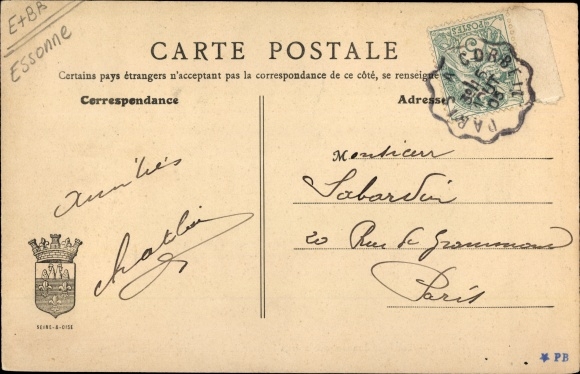 E+BR
Essonne
CARTE POSTALE
Certains pays étrangers n'acceptent pas la correspondance de ce côté, se renseigne
Correspondance
Adresse
PARIS A CORBEIL
Monsieur
Labardin
20 Rue de Grammont
Paris
Amitiés
SEINE-&-OISE
PB